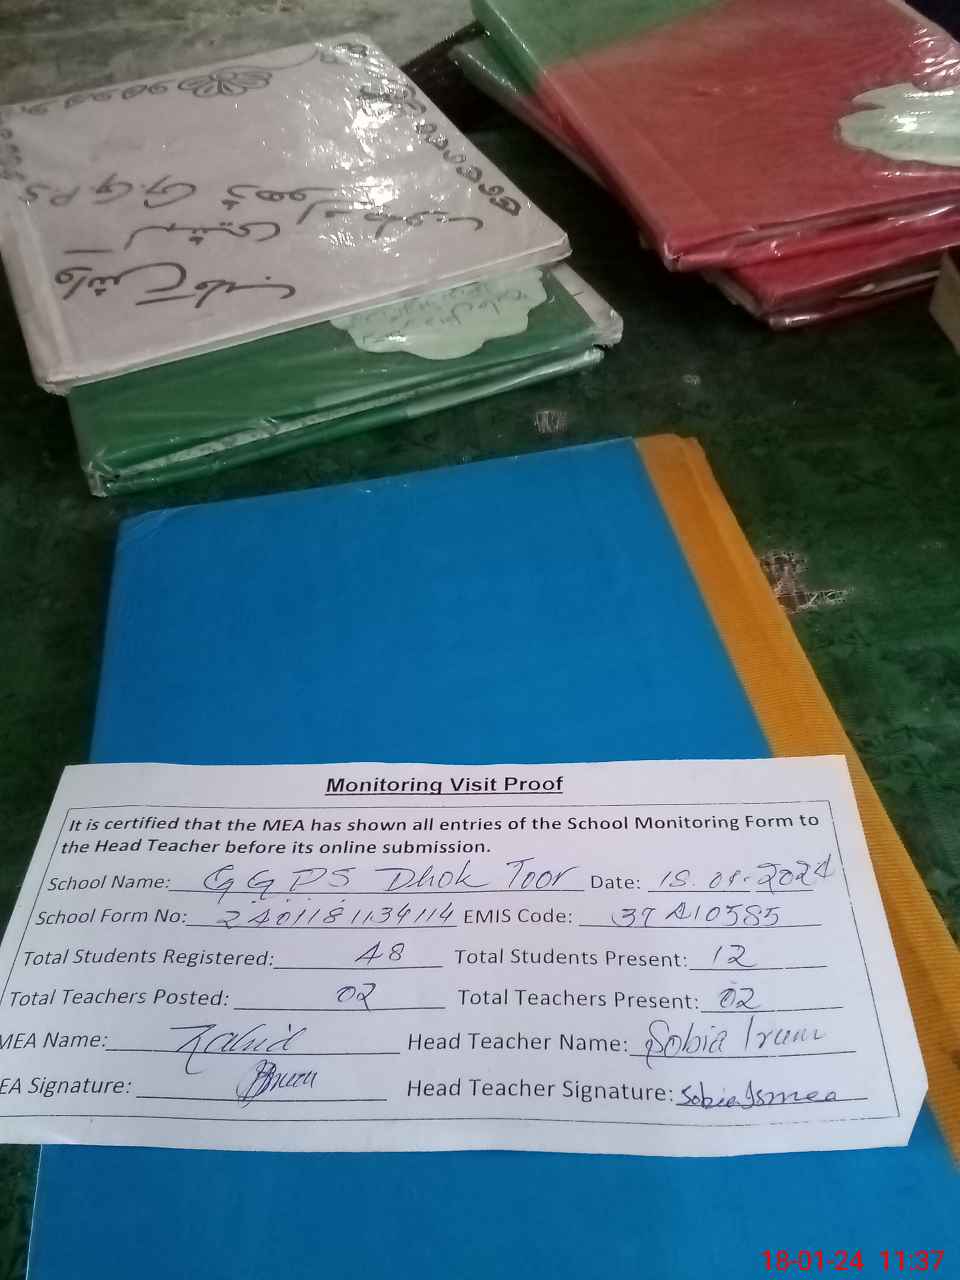 G.G.P.S
Monitoring Visit Proof
It is certified that the MEA has shown all entries of the School Monitoring Form to
the Head Teacher before its online submission.
School Name: GGPS Dhok Toor Date: 18.01.2024
School Form No: 2401181134114 EMIS Code: 37410585
Total Students Registered: 48 Total Students Present: 12
Total Teachers Posted: 02 Total Teachers Present: 02
MEA Name: Zahid Head Teacher Name: Sobia Irum
EA Signature: Head Teacher Signature: Sobia
18-01-24 11:37